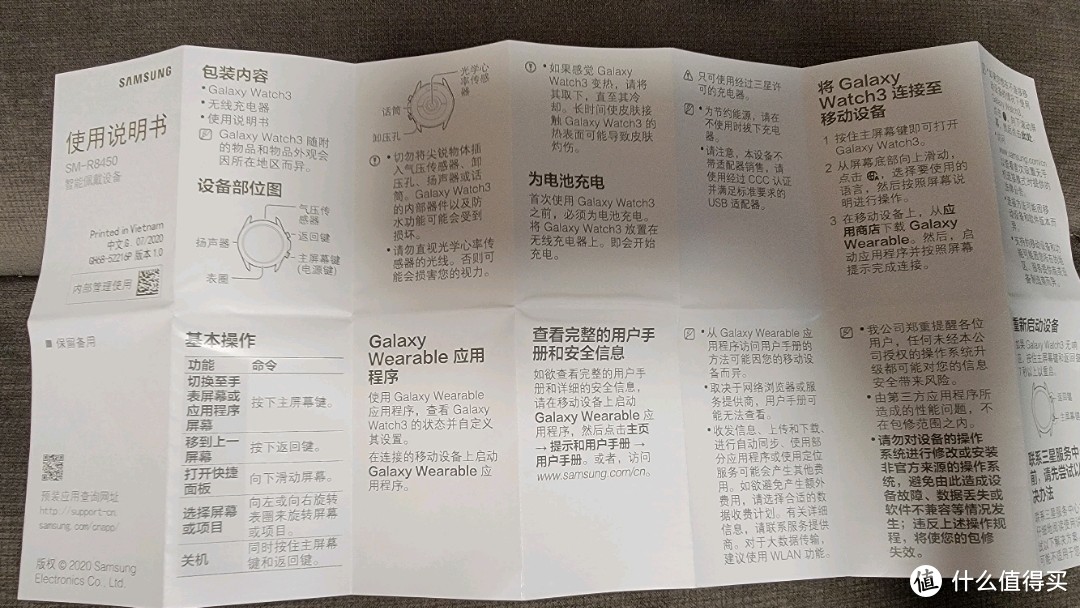 SAMSUNG
使用说明书
SM-R8450
智能佩戴设备
Printed in Vietnam
中文8. 07/2020
GH68-52216P 版本 1.0
内部管理使用
包装内容
• Galaxy Watch3
• 无线充电器
• 使用说明书
Galaxy Watch3 随附
的物品和物品外观会
因所在地区而异。
设备部位图
气压传
感器
扬声器
返回键
主屏幕键
(电源键)
表圈
光学心
率传感
器
话筒
卸压孔
• 切勿将尖锐物体插
入气压传感器、卸
压孔、扬声器或话
筒。Galaxy Watch3
的内部器件以及防
水功能可能会受到
损坏。
• 请勿直视光学心率传
感器的光线。否则可
能会损害您的视力。
• 如果感觉 Galaxy
Watch3 变热，请将
其取下，直至其冷
却。长时间使皮肤接
触 Galaxy Watch3 的
热表面可能导致皮肤
灼伤。
为电池充电
首次使用 Galaxy Watch3
之前，必须为电池充电。
将 Galaxy Watch3 放置在
无线充电器上。即会开始
充电。
只可使用经过三星许
可的充电器。
• 为节约能源，请在
不使用时拔下充电
器。
• 请注意，本设备不
带适配器销售，请
使用经过 CCC 认证
并满足标准要求的
USB 适配器。
将 Galaxy
Watch3 连接至
移动设备
1 按住主屏幕键即可打开
Galaxy Watch3.
2 从屏幕底部向上滑动，
点击 ，选择要使用的
语言，然后按照屏幕说
明进行操作。
3 在移动设备上，从应
用商店下载 Galaxy
Wearable。然后，启
动应用程序并按照屏幕
提示完成连接。
■ 保留备用
原装应用查询网址
http://support-cn.
samsung.com/cnapp/
版权 © 2020 Samsung
Electronics Co., Ltd.
基本操作
功能 命令
切换至手
表屏幕或
应用程序
屏幕
按下主屏幕键。
移到上一
屏幕
按下返回键。
打开快捷
面板
向下滑动屏幕。
选择屏幕
或项目
向左或向右旋转
表圈来旋转屏幕
或项目。
关机
同时按住主屏幕
键和返回键。
Galaxy
Wearable 应用
程序
使用 Galaxy Wearable
应用程序，查看 Galaxy
Watch3 的状态并自定义
其设置。
在连接的移动设备上启动
Galaxy Wearable 应
用程序。
查看完整的用户手
册和安全信息
如欲查看完整的用户手
册和详细的安全信息，
请在移动设备上启动
Galaxy Wearable 应
用程序，然后点击主页
→ 提示和用户手册 →
用户手册。或者，访问
www.samsung.com/cn。
• 从 Galaxy Wearable 应
用程序访问用户手册的
方法可能因您的移动设
备而异。
• 取决于网络浏览器或服
务提供商，用户手册可
能无法查看。
• 收发信息、上传和下载、
进行自动同步、使用部
分应用程序或使用定位
服务可能会产生其他费
用。如欲避免产生额外
费用，请选择合适的数
据收费计划。有关详细
信息，请联系服务提供
商。对于大数据传输，
建议使用 WLAN 功能。
• 我公司郑重提醒各位
用户，任何未经本公
司授权的操作系统升
级都可能对您的信息
安全带来风险。
• 由第三方应用程序所
造成的性能问题，不
在包修范围之内。
• 请勿对设备的操作
系统进行修改或安装
非官方来源的操作系
统，避免由此造成设
备故障、数据丢失或
软件不兼容等情况发
生；违反上述操作规
程，将使您的包修
失效。
重新启动设备
返回键
主屏幕键
联系三星服务中
前，请先尝试以
决办法
值 什么值得买